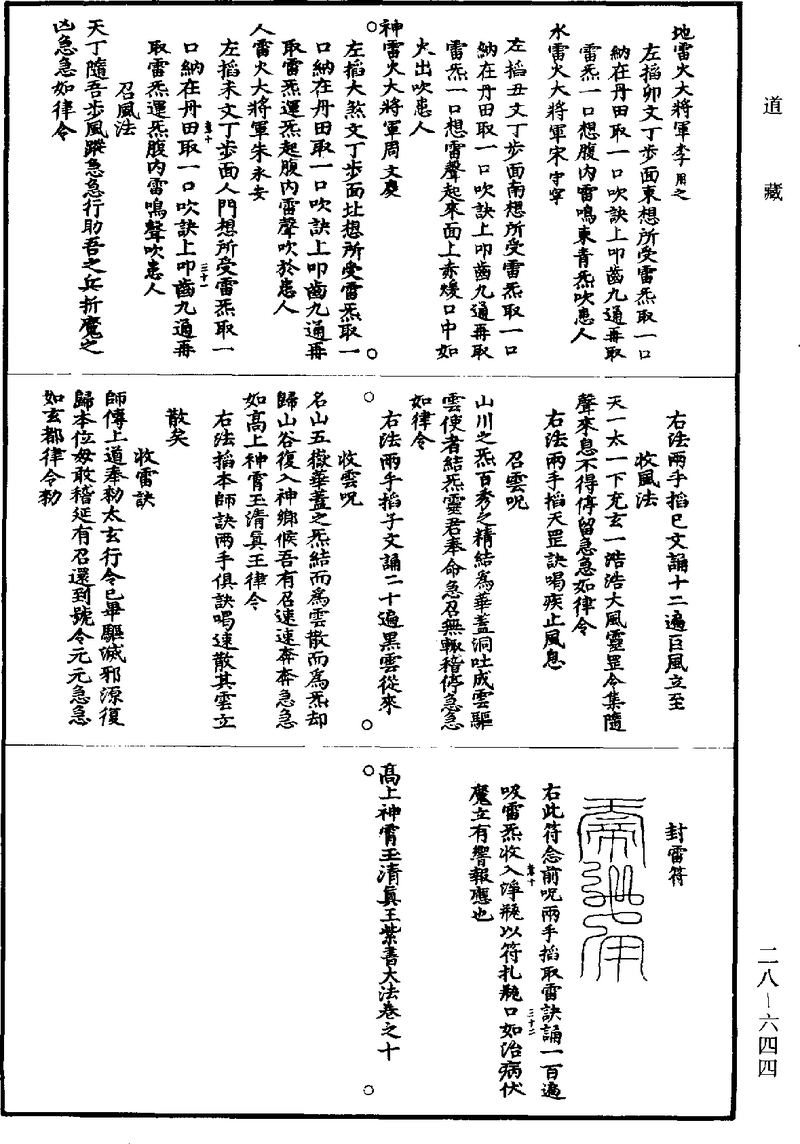 道藏
地雷火大將軍李用之
左搯卯文丁步面東想所受雷炁取一口
納在丹田取一口吹訣上叩齒九通再取
雷炁一口想腹內雷鳴東青炁吹患人
水雷火大將軍宋守寧
左搯丑文丁步面南想所受雷炁取一口
納在丹田取一口吹訣上叩齒九通再取
雷炁一口想雷聲起來面上赤煖口中如
火出吹患人
神雷火大將軍周文慶
左搯大煞文丁步面北想所受雷炁取一
口納在丹田取一口吹訣上叩齒九通再
取雷炁運炁起腹內雷聲吹於患人
人雷火大將軍朱永安
左搯未文丁步面人門想所受雷炁取一
口納在丹田取一口吹訣上叩齒九通再
卷十
三十一
取雷炁運炁腹內雷鳴聲吹患人
召風法
天丁隨吾步風蹤急急行助吾之兵折魔之
凶急急如律令
右法兩手搯巳文誦十二遍巨風立至
收風法
天一太一下充玄一浩浩大風靈罡令集隨
聲來息不得停留急急如律令
右法兩手搯天罡訣喝疾止風息
召雲呪
山川之炁百秀之精結為華蓋洞吐成雲驅
雲使者結炁靈君奉命急召無輙稽停急急
如律令
右法兩手搯子文誦二十遍黑雲從來
收雲呪
名山五嶽華蓋之炁結而為雲散而為炁却
歸山谷復入神鄉候吾有召速速奔奔急急
如高上神霄玉清真王律令
右法搯本師訣兩手俱訣喝速散其雲立
散矣
收雷訣
師傳上道奉勑太玄行令已畢驅滅邪源復
歸本位毋敢稽延有召還到號令元元急急
如玄都律令勑
封雷符
右此符念前呪兩手搯取雷訣誦一百遍
吸雷炁收入淨瓶以符扎瓶口如治病伏
卷十
三十二
魔立有響報應也
高上神霄玉清真王紫書大法卷之十
二八—六四四